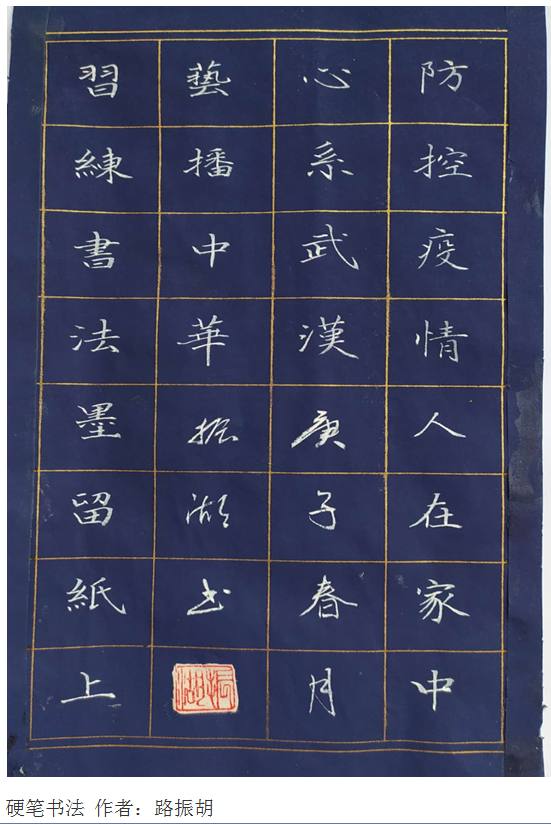 防控疫情人在家中
心系武漢庚子春月
藝播中華振湖书
振湖
習練書法墨留紙上
硬笔书法 作者：路振胡